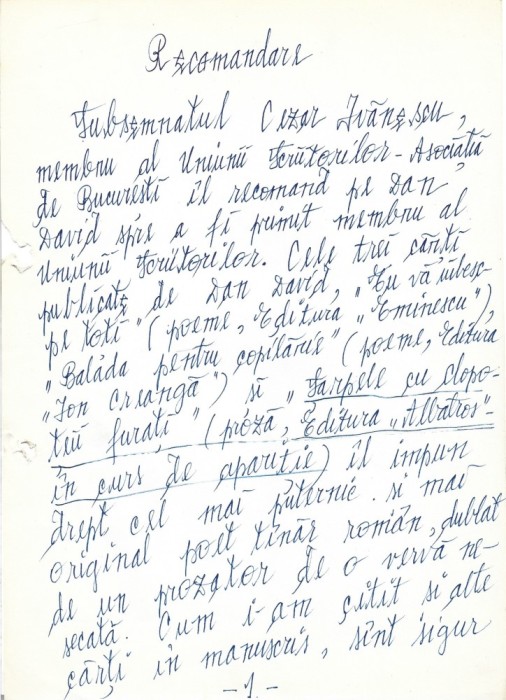 Recomandare
Subsemnatul Cezar Ivănescu,
membru al Uniunii Scriitorilor - Asociația
de București îl recomand pe Dan
David spre a fi primit membru al
Uniunii Scriitorilor. Cele trei cărți
publicate de Dan David, „Eu vă iubesc
pe toți" (poeme, Editura „Eminescu"),
„Balada pentru copilărie" (poeme, Editura
„Ion Creangă") și „Șarpele cu clopo-
ței furați" (proză, Editura „Albatros" -
în curs de apariție) îl impun
drept cel mai puternic și mai
original poet tînăr român, dublat
de un prozator de o vervă ne-
secată. Cum i-am citit și alte
cărți în manuscris, sînt sigur
- 1. -